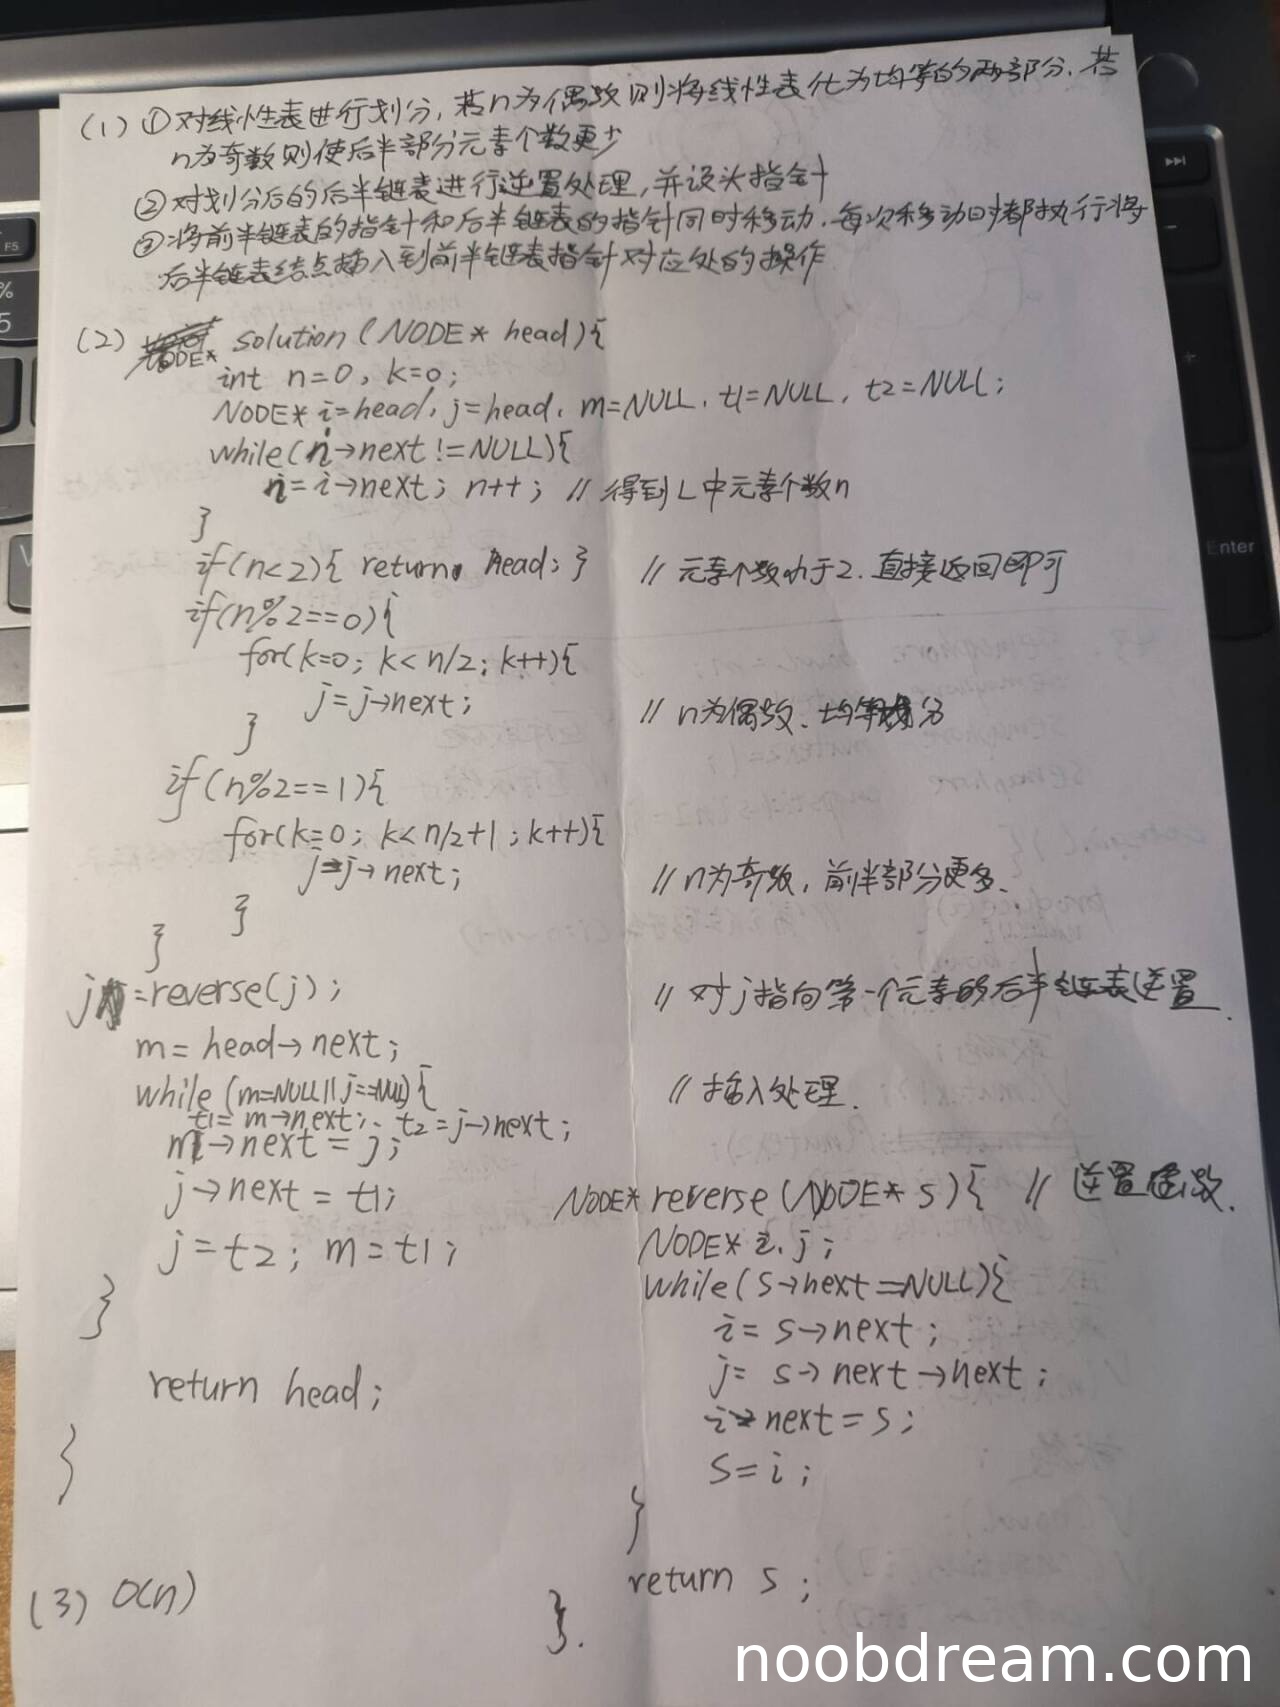 (1) ①对线性表进行划分,若n为偶数则将线性表化为均等的两部分.若
n为奇数则使后半部分元素个数更少
②对划分后的后半链表进行逆置处理,并设头指针
③将前半链表的指针和后半链表的指针同时移动.每次移动时都执行将
后半链表结点插入到前半链表指针对应处的操作
(2) NODE* solution(NODE* head){
int n=0, k=0;
NODE* i=head, j=head, m=NULL, t1=NULL, t2=NULL;
while(i→next!=NULL){
i=i→next; n++; //得到L中元素个数n
}
if(n<2){ return head; } //元素个数小于2.直接返回即可
if(n%2==0){
for(k=0; k<n/2; k++){
j=j→next; //n为偶数、均等划分
}
if(n%2==1){
for(k=0; k<n/2+1; k++){
j=j→next; //n为奇数,前半部分更多.
}
}
j=reverse(j); //对j指向第一个元素的后半链表逆置.
m=head→next;
while(m=NULL||j==NULL){ //插入处理.
t1=m→next; t2=j→next;
m→next=j;
j→next=t1;
j=t2; m=t1;
}
return head;
}
NODE* reverse(NODE* s){ //逆置函数.
NODE* i,j;
while(s→next==NULL){
i=s→next;
j=s→next→next;
i→next=s;
s=i;
}
return s;
}.
(3) O(n)
noobdream.com